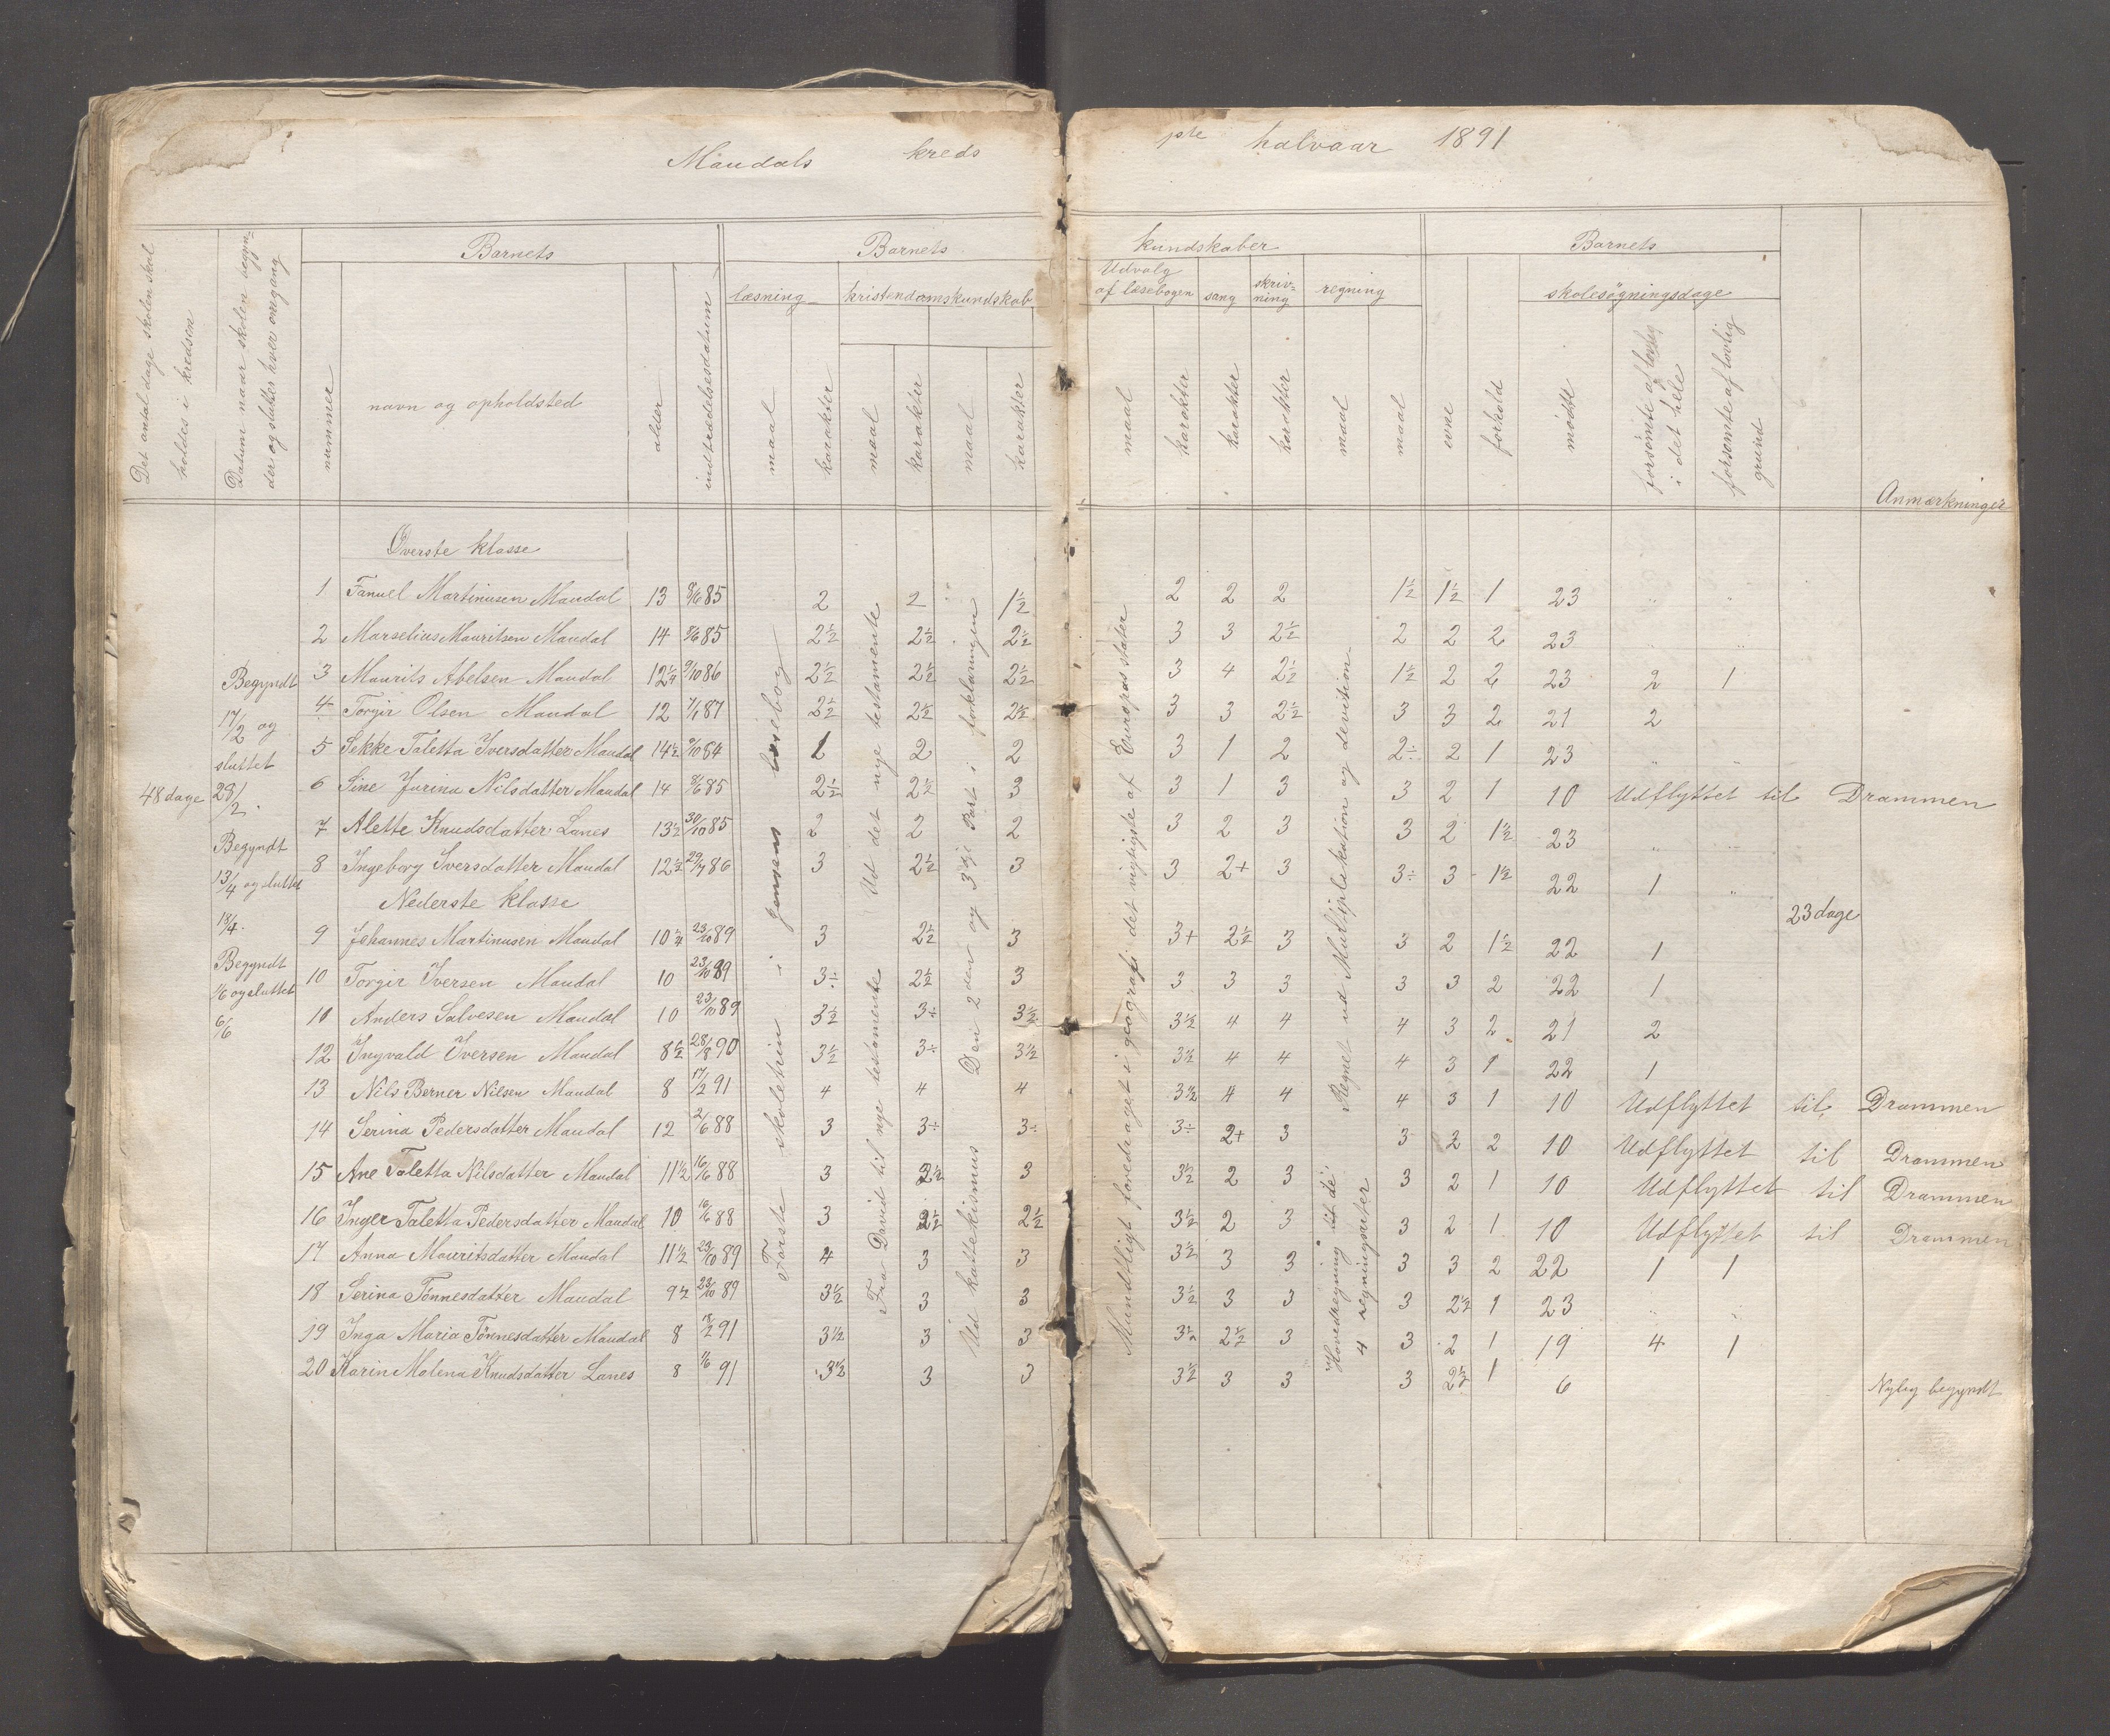 Maudals kreds
1ste halvaar 1891
Det antal dage skolen skal holdes i kredsen
Datum naar skolen begynder og sluttes hver ongang
Barnets
nummer
navn og opholdsted
alder
indtrædelsesdatum
Barnets kundskaber
læsning
maal
karakter
kristendomskundskab
maal
karakter
maal
karakter
Udvalg af læsebogen
maal
karakter
sang
karakter
skrivning
karakter
regning
maal
maal
Barnets
evne
forhold
skolesøgningsdage
mødte
forsømte i det hele
forsømte af lovlig grund
Anmærkninger
48 dage
Begyndt
17/2 og
sluttet
28/2.
Begyndt
13/4 og sluttet
18/4.
Begyndt
1/6 og sluttet
6/6
Øverste klasse
1 Fanuel Martinusen Maudal 13 8/6 85 2 2 1½ 2 2 2 1½ 1½ 1 23 " "
2 Marselius Mauritsen Maudal 14 8/6 85 2½ 2½ 2½ 3 3 2½ 2 2 2 23 " "
3 Maurits Abelsen Maudal 12¼ 9/10 86 2½ 2½ 2½ 3 4 2½ 1½ 2 2 23 2 1
4 Torgir Olsen Maudal 12 7/1 87 2½ 2½ 2½ 3 3 2½ 3 3 2 21 2
5 Sekke Taletta Iversdatter Maudal 14½ 9/10 84 1 2 2 3 1 2 2÷ 2 1 23 " "
6 Sine Jurina Nilsdatter Maudal 14 8/6 85 2½ 2½ 3 3 1 3 3 2 1 10 Udflyttet til Drammen
7 Alette Knudsdatter Lanes 13½ 30/10 85 2 2 2 3 2 3 3 2 1½ 23 " "
8 Ingeborg Iversdatter Maudal 12½ 29/7 86 3 2½ 3 3 2+ 3 3÷ 3 1½ 22 1 "
Nederste klasse
23 dage
9 Johannes Martinusen Maudal 10¼ 23/10 89 3 2½ 3 3+ 2½ 3 3 2 1½ 22 1
10 Torgir Iversen Maudal 10 23/10 89 3÷ 2½ 3 3 3 3 3 3 2 22 1
11 Anders Salvesen Maudal 10 23/10 89 3½ 3÷ 3½ 3½ 4 4 4 3 2 21 2
12 Ingvald Iversen Maudal 8½ 28/8 90 3½ 3÷ 3½ 3½ 4 4 4 3 1 22 1
13 Nils Berner Nilsen Maudal 8 17/2 91 4 4 4 3½ 4 4 4 3 1 10 Udflyttet til Drammen
14 Serina Pedersdatter Maudal 12 2/6 88 3 3÷ 3÷ 3÷ 2+ 3 3 2 2 10 Udflyttet til Drammen
15 Ane Taletta Nilsdatter Maudal 11½ 16/6 88 3 2½ 3 3½ 2 3 3 2 1 10 Udflyttet til Drammen
16 Inger Taletta Pedersdatter Maudal 10 16/6 88 3 2½ 2½ 3½ 2 3 3 2 1 10 Udflyttet til Drammen
17 Anna Mauritsdatter Maudal 11½ 23/10 89 4 3 3 3½ 3 3 3 3 2 22 1 1
18 Serina Tønnesdatter Maudal 9½ 23/10 89 3½ 3 3 3½ 3 3 3 2½ 1 23 " "
19 Inga Maria Tønnesdatter Maudal 8 17/2 91 3½ 3 3 3½ 2½ 3 3 2 1 19 4 1
20 Karin Malena Knudsdatter Lanes 8 1/6 91 3½ 3 3 3½ 3 3 3 2½ 1 6 Nylig begyndt
Første skoletrin i Jensens læsebog
Ud det nye testamente
Fra David til nye testamente
Den 2den og 3dje Part i forklaringen
Ud kattekismus
Mundtligt foredraget i geografi det vigtigste af Europas stater
Regnet ud Multiplekation og devition
Hovedregning til de 4 regningsarter